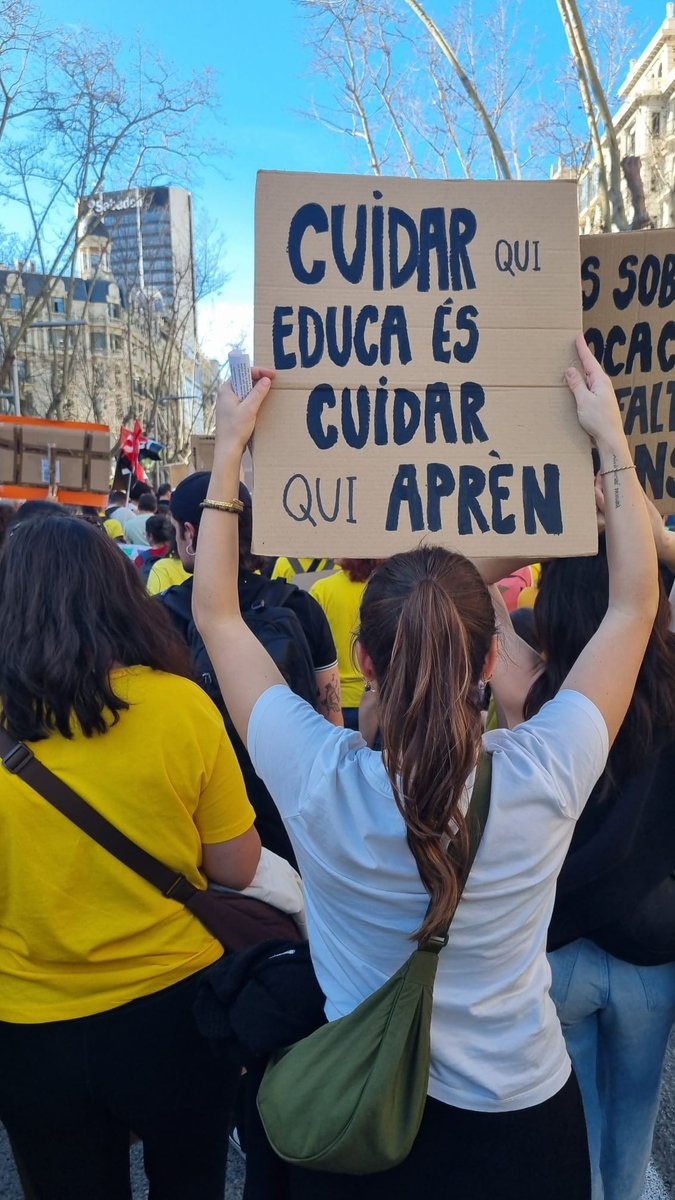 Sabadell
CUIDAR QUI
EDUCA ÉS
CUIDAR
QUI APRÈN
S SOB
OCAC
FALT
NS